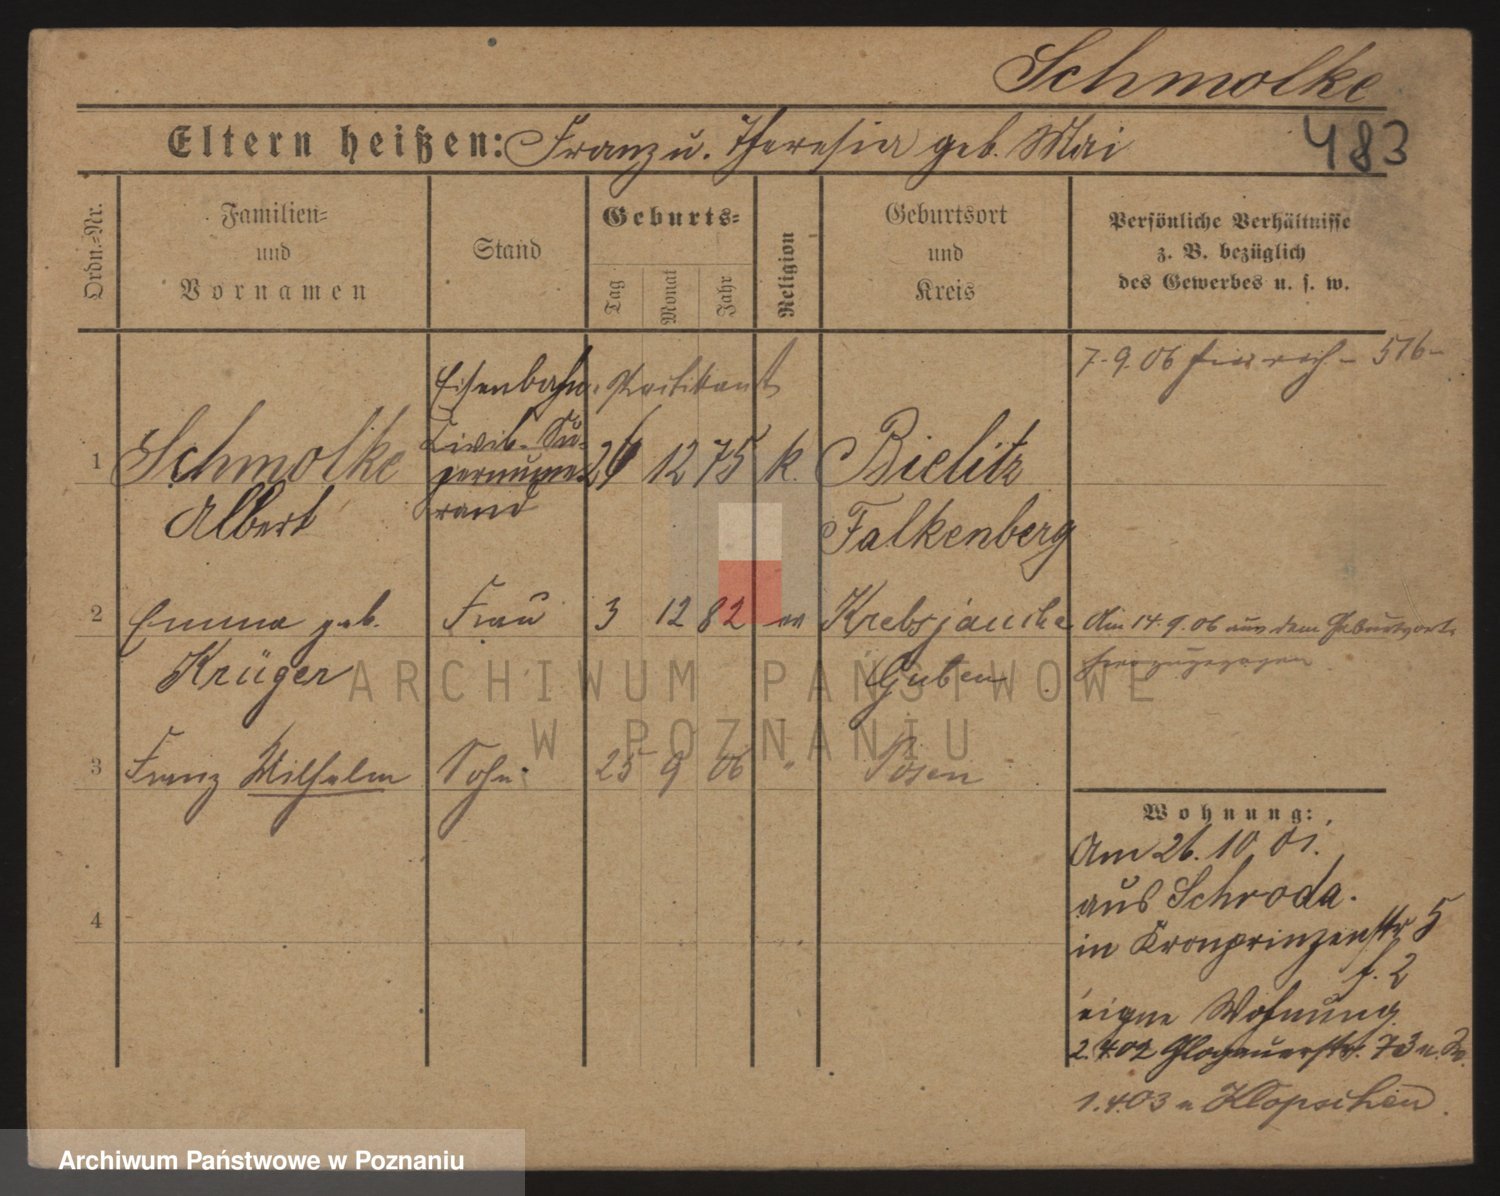 Schmolke
Eltern heißen: Franz u. Theresia geb. Mai
483
Ordn.-Nr.
Familien-
und
Vornamen
Stand
Geburts-
Tag
Monat
Jahr
Religion
Geburtsort
und
Kreis
Persönliche Verhältnisse
z. B. bezüglich
des Gewerbes u. s. w.
7.9.06 516
Eisenbahn Praktikant
1 Schmolke Civil-Su- 26 12 75 k. Bielitz
pernume-
Albert rand Falkenberg
2 Emma geb. Frau 3 12 82 Krebsjauche Am 14.9.06 aus dem Geburtsort
Krüger Guben
3 Franz Wilhelm Sohn 25 9 06 " Posen
4
Wohnung:
Am 26.10.01.
aus Schroda.
in Kronprinzenstr 5
eigne Wohnung.
2.4.02 Glogauerstr. 73
1.4.03 n Klopschen
ARCHIWUM PAŃSTWOWE
W POZNANIU
Archiwum Państwowe w Poznaniu